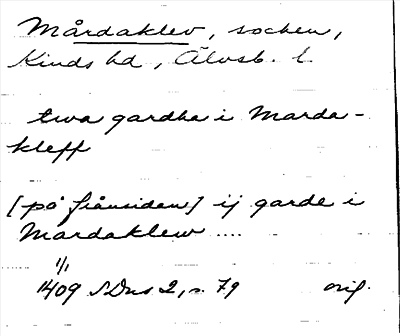 Mårdaklev, socken,
Kinds hd, Älvsb. l.
twa gardha i Marda-
kleff
[på frånsidan] ij garde i
Mardaklew ....
1/1
1409 SDns 2, s. 79 orig.